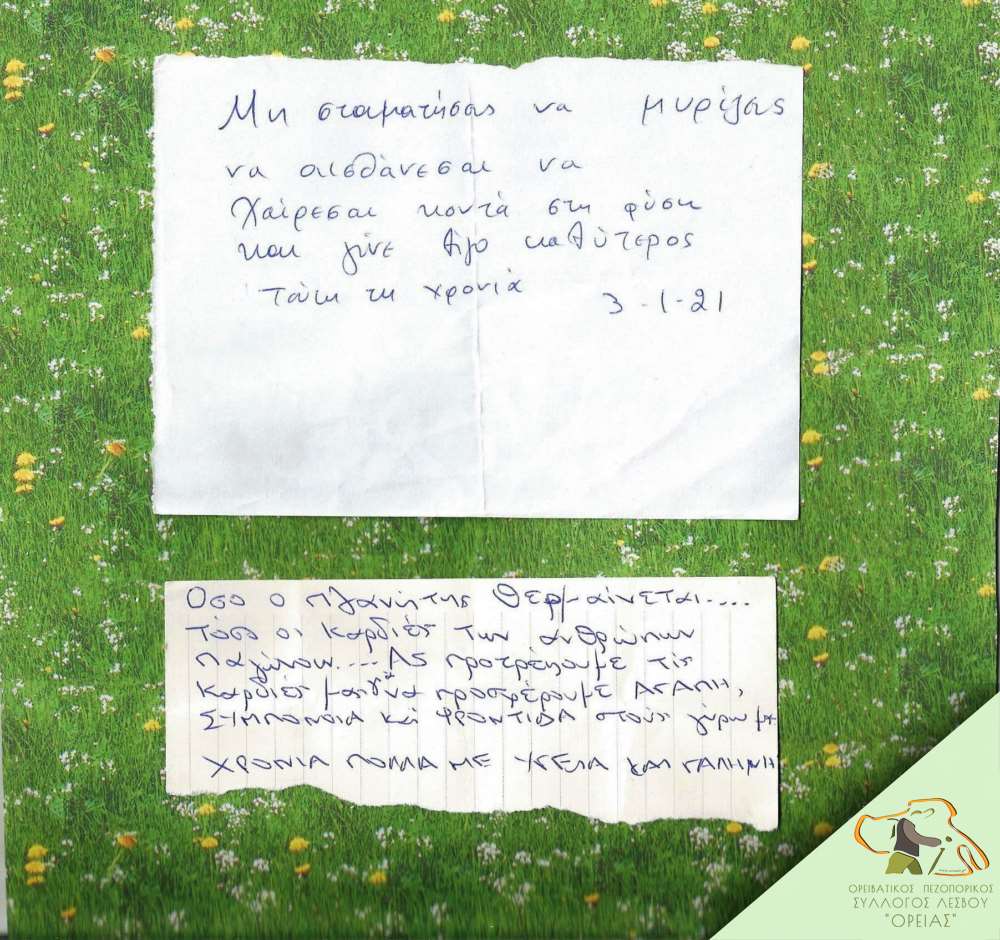 Μη σταματήσεις να μυρίζεις
να αισθάνεσαι να
χαίρεσαι κοντά στη φύση
και γίνε λίγο καλύτερος
τούτη τη χρονιά 3-1-21
Όσο ο πλανήτης θερμαίνεται....
τόσο οι καρδιές των ανθρώπων
παγώνουν.... Ας προτρέψουμε τις
καρδιές μας για να προσφέρουμε ΑΓΑΠΗ,
ΣΥΜΠΟΝΟΙΑ και ΦΡΟΝΤΙΔΑ στους γύρω μας
ΧΡΟΝΙΑ ΠΟΛΛΑ ΜΕ ΥΓΕΙΑ ΚΑΙ ΓΑΛΗΝΗ
ΟΡΕΙΒΑΤΙΚΟΣ ΠΕΖΟΠΟΡΙΚΟΣ
ΣΥΛΛΟΓΟΣ ΛΕΣΒΟΥ
"ΟΡΕΙΑΣ"